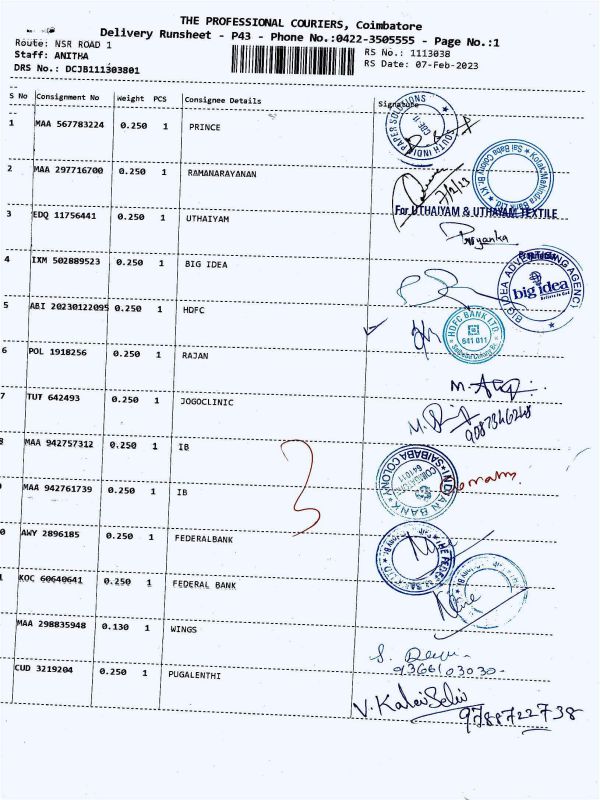 THE PROFESSIONAL COURIERS, Coimbatore
Delivery Runsheet - P43 - Phone No.:0422-3505555 - Page No.:1
Route: NSR ROAD 1
RS No.: 1113038
Staff: ANITHA
RS Date: 07-Feb-2023
DRS No.: DCJB111303801
S No Consignment No Weight PCS Consignee Details Signature
1 MAA 567783224 0.250 1 PRINCE
SOUTH INDIA PAPER SOLUTIONS
CBE-11
2 MAA 297716700 0.250 1 RAMANARAYANAN
Kotak Mahindra Bank Ltd
Sai Baba Colony Br.
7/2/23
3 EDQ 11756441 0.250 1 UTHAIYAM
For UTHAIYAM & UTHAYAM TEXTILE
Priyanka
4 IXM 502889523 0.250 1 BIG IDEA
BIG IDEA ADVERTISING AGENCY
big idea
5 ABI 20230122095 0.250 1 HDFC
HDFC BANK LTD.
641 011
6 POL 1918256 0.250 1 RAJAN
7 TUT 642493 0.250 1 JOGOCLINIC
8 MAA 942757312 0.250 1 IB
3
INDIAN BANK
SAIBABA COLONY
COIMBATORE
641011
9 MAA 942761739 0.250 1 IB
0 AWY 2896185 0.250 1 FEDERALBANK
1 KOC 60640641 0.250 1 FEDERAL BANK
MAA 298835948 0.130 1 WINGS
S. Devi
9366103030
CUD 3219204 0.250 1 PUGALENTHI
V. KalaiSelvi
9788722738